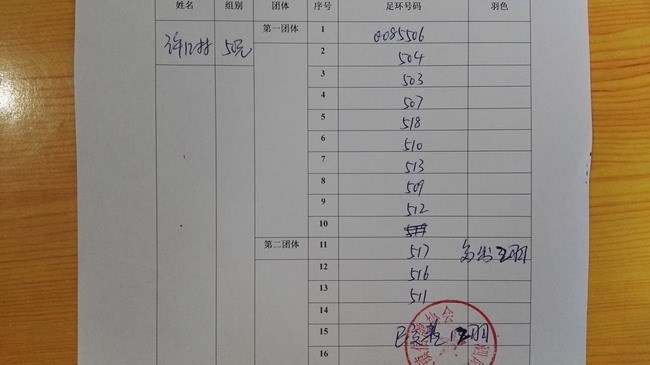 姓名 组别 团体 序号 足环号码 羽色
50元 第一团体 1 0085506
2 504
3 503
4 507
5 518
6 510
7 513
8 509
9 512
10
第二团体 11 517
12 516
13 511
14
15
16